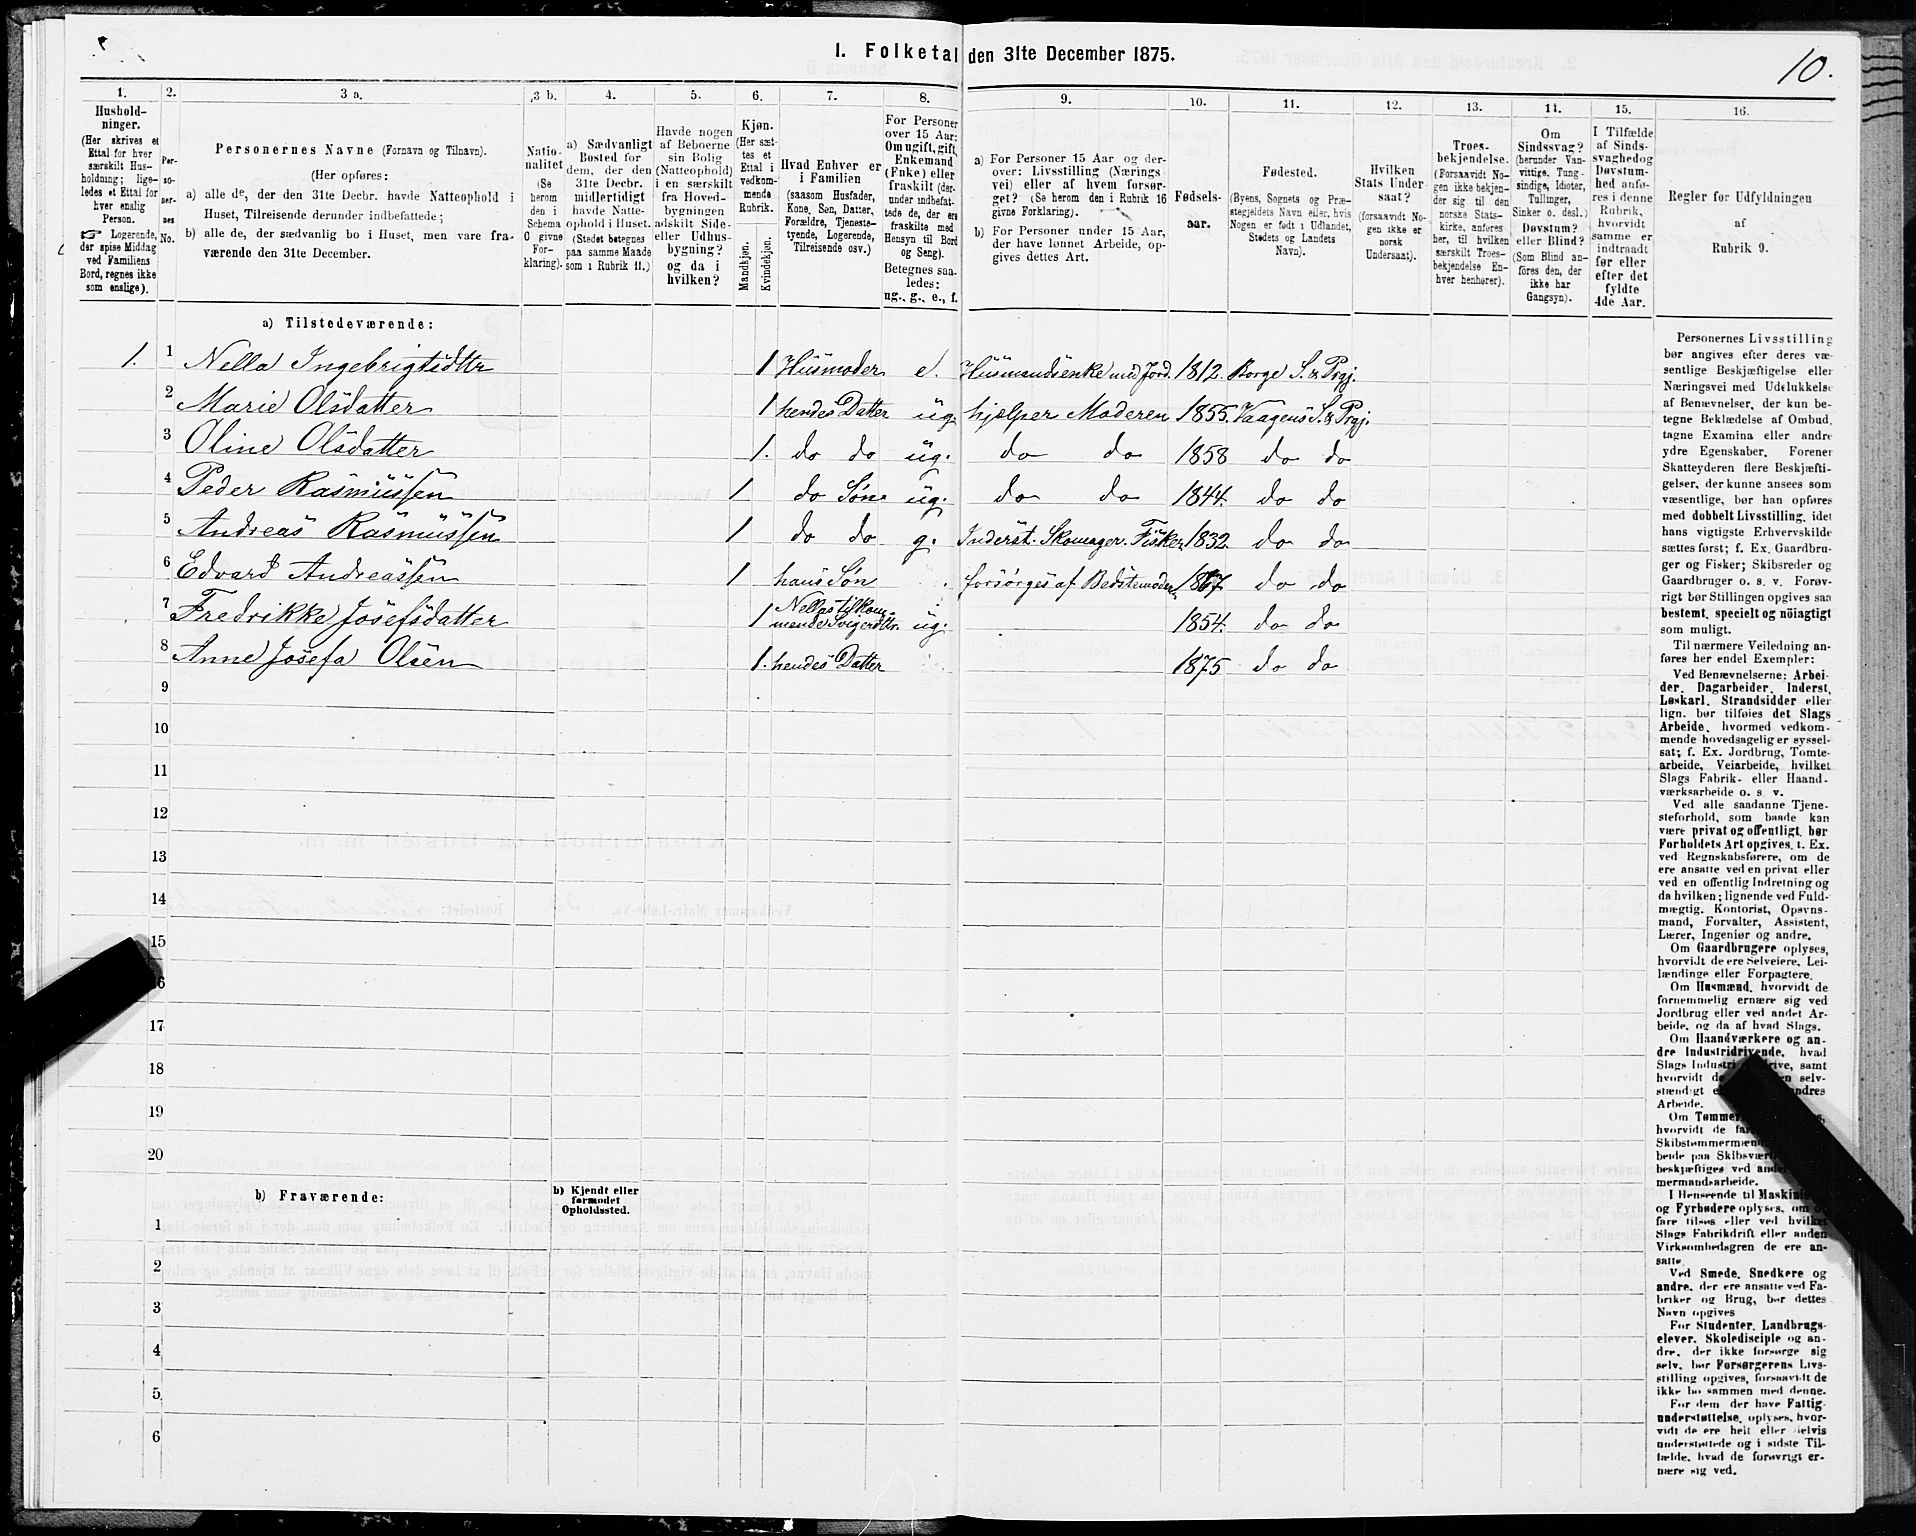 1. Folketal den 31te December 1875.
10.
1.
Hushold-
ninger.
(Her skrives et
Ettal for hver
særskilt Hus-
holdning; lige-
ledes et Ettal for
hver enslig
Person.
☞ Logerende,
der spise Middag
ved Familiens
Bord, regnes ikke
som enslige).
2.
Per-
so-
ner-
nes
No.
3 a.
Personernes Navne (Fornavn og Tilnavn).
(Her opføres:
a) alle de, der den 31te Decbr. havde Natteophold i
Huset, Tilreisende derunder indbefattede;
b) alle de, der sædvanlig bo i Huset, men vare fra-
værende den 31te December.
3 b.
Natio-
nalitet
(Se
herom
den i
Schema
C givne
For-
klaring).
4.
a) Sædvanligt
Bosted for
dem, der den
31te Decbr.
midlertidigt
havde Natte-
ophold i Huset.
(Stedet betegnes
paa samme Maade
som i Rubrik 11.)
5.
Havde nogen
af Beboerne
sin Bolig
(Natteophold)
i en særskilt
fra Hoved-
bygningen
adskilt Side-
eller Udhus-
bygning?
og da i
hvilken?
6.
Kjøn.
(Her sæt-
tes et
Ettal i
vedkom-
mende
Rubrik.
Mandkjøn.
Kvindekjøn.
7.
Hvad Enhver er
i Familien
(saasom Husfader,
Kone, Søn, Datter,
Forældre, Tjeneste-
tyende, Logerende,
Tilreisende osv.)
8.
For Personer
over 15 Aar:
Om ugift, gift,
Enkemand
(Enke) eller
fraskilt (der-
under indbefat-
tede de, der ere
fraskilte med
Hensyn til Bord
og Seng).
Betegnes saa-
ledes:
ug., g., e., f.
9.
a) For Personer 15 Aar og der-
over: Livsstilling (Nærings-
vei) eller af hvem forsør-
get? (Se herom den i Rubrik 16
givne Forklaring).
b) For Personer under 15 Aar,
der have lønnet Arbeide, op-
gives dettes Art.
10.
Fødsels-
aar.
11.
Fødested.
(Byens, Sognets og Præ-
stegjeldets Navn eller, hvis
Nogen er født i Udlandet,
Stedets og Landets
Navn).
12.
Hvilken
Stats Under-
saat?
(forsaavidt No-
gen ikke er
norsk
Undersaat).
13.
Troes-
bekjendelse.
(Forsaavidt No-
gen ikke bekjen-
der sig til den
norske Stats-
kirke, anføres
her, til hvilken
særskilt Troes-
bekjendelse En-
hver henhører).
14.
Om
Sindssvag?
(herunder Van-
vittige, Tung-
sindige, Idioter,
Tullinger,
Sinker o. desl.)
Døvstum?
eller Blind?
(Som Blind an-
føres den, der
ikke har
Gangsyn).
15.
I Tilfælde
af Sinds-
svaghed og
Døvstum-
hed anfø-
res i denne
Rubrik,
hvorvidt
samme er
indtraadt
før eller
efter det
fyldte
4de Aar.
16.
Regler for Udfyldningen
af
Rubrik 9.
a) Tilstedeværende:
1. 1 Nella Ingebrigtsdttr 1 Husmoder e. Husmandsenke med Jord. 1812. Borge S. & Prgj.
2 Marie Olsdatter 1 hendes Datter ug. hjælper Moderen 1855. Vaagens S. & Prgj.
3 Oline Olsdatter 1. do do ug. do do 1858 do do
4 Peder Rasmussen 1 do Søn ug. do do 1844. do do
5 Andreas Rasmussen 1 do do g. Inderst. Skomager. Fisker. 1832. do do
6 Edvard Andreassen 1 hans Søn forsørges af Bedstemoder. 1867. do do
7 Fredrikke Josefsdatter 1 Nellas tilkom-
mende Svigerdttr. ug. 1854. do do
8 Anne Josefa Olsen 1. hendes Datter 1875 do do
9
10
11
12
13
14
15
16
17
18
19
20
b) Fraværende:
b) Kjendt eller
formodet
Opholdssted.
1
2
3
4
5
6
Personernes Livsstilling
bør angives efter deres væ-
sentlige Beskjæftigelse eller
Næringsvei med Udelukkelse
af Benævnelser, der kun be-
tegne Beklædelse af Ombud,
tagne Examina eller andre
ydre Egenskaber. Forener
Skatteyderen flere Beskjæfti-
gelser, der kunne ansees som
væsentlige, bør han opføres
med dobbelt Livsstilling, idet
hans vigtigste Erhvervskilde
sættes først; f. Ex. Gaardbru-
ger og Fisker; Skibsreder og
Gaardbruger o. s. v. Forøv-
rigt bør Stillingen opgives saa
bestemt, specielt og nöiagtigt
som muligt.
Til nærmere Veiledning an-
føres her endel Exempler:
Ved Benævnelserne: Arbei-
der, Dagarbeider, Inderst,
Løskarl, Strandsidder eller
lign. bør tilføies det Slags
Arbeide, hvormed vedkom-
mende hovedsagelig er syssel-
sat; f. Ex. Jordbrug, Tomte-
arbeide, Veiarbeide, hvilket
Slags Fabrik- eller Haand-
værksarbeide o. s. v.
Ved alle saadanne Tjene-
steforhold, som baade kan
være privat og offentligt, bør
Forholdets Art opgives, f. Ex.
ved Regnskabsførere, om de
ere ansatte ved en privat eller
ved en offentlig Indretning og
da hvilken; lignende ved Fuld-
mægtig, Kontorist, Opsyns-
mand, Forvalter, Assistent,
Lærer, Ingeniør og andre.
Om Gaardbrugere oplyses,
hvorvidt de ere Selveiere, Lei-
lændinge eller Forpagtere.
Om Husmænd, hvorvidt de
fornemmelig ernære sig ved
Jordbrug eller ved andet Ar-
beide, og da af hvad Slags.
Om Haandværkere og an-
dre Industridrivende, hvad
Slags Industri drive, samt
hvorvidt de en selv-
stændigt andres
Arbeide.
Om
hvorvidt de
Skibstømmermænd
beide paa
beskjæftiges ved
mermandsarbeide.
I Henseende til
og Fyrbødere oplyses, om
fare tilsøs eller ved hvilket
Slags Fabrikdrift eller anden
Virksomhedsgren de ere an-
satte.
Ved Smede, Snedkere og
andre, der ere ansatte ved Fa-
briker og Brug, bør dettes
Navn opgives
For Studenter, Landbrugs-
elever, Skoledisciple og an-
dre, der ikke forsørge sig
selv, bør Forsørgerens Livs-
stilling opgives, forsaavidt de
ikke bo sammen med denne.
For dem, der have Fattig-
understøttelse, oplyses, hvor-
vidt de ere helt eller delvis
understøttede og i sidste Til-
fælde, hvad de forøvrigt er-
nære sig ved.